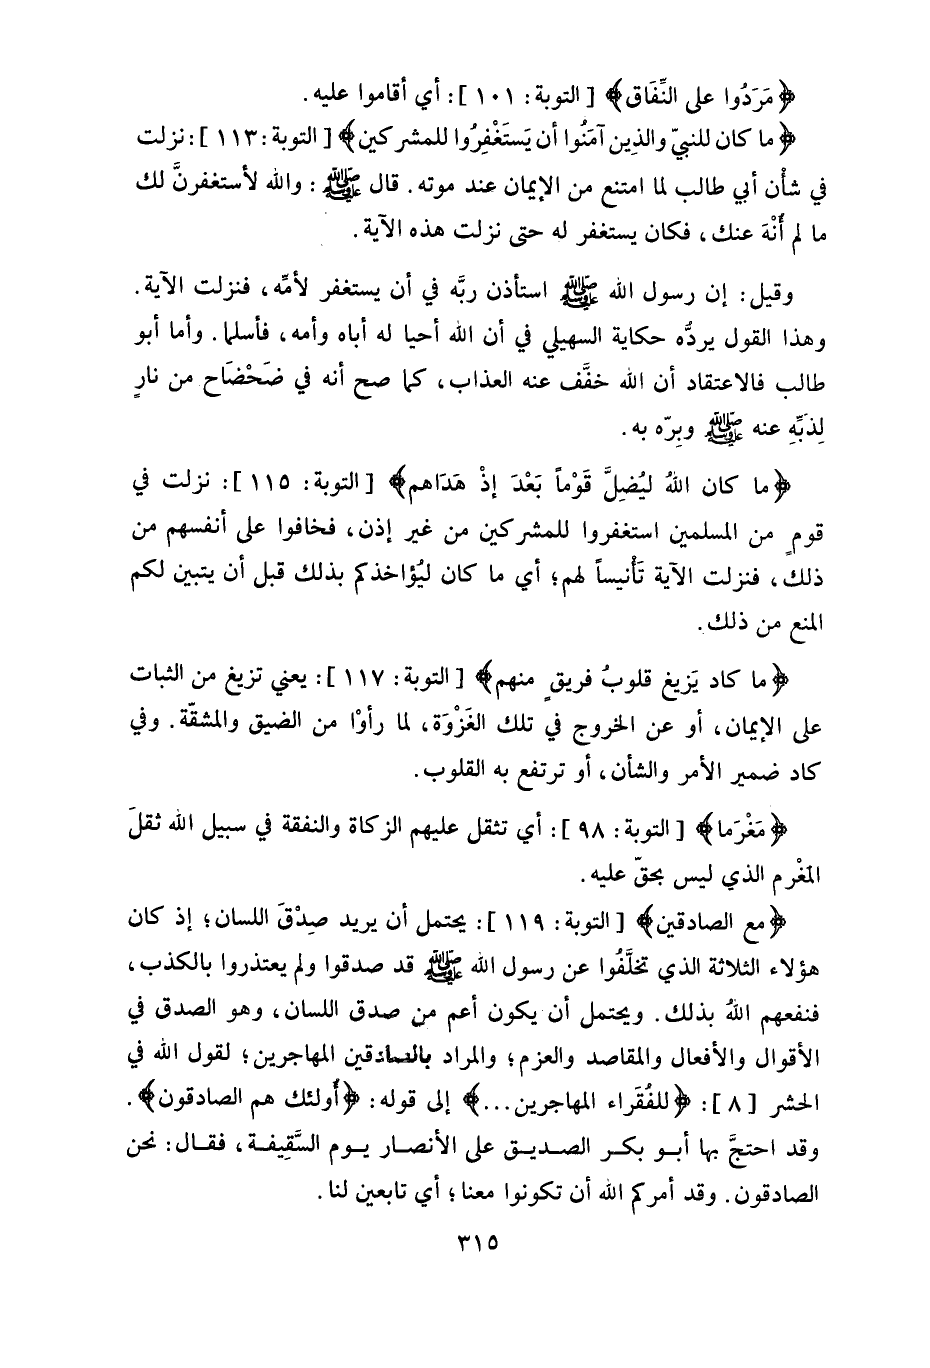 ﴿مَرَدُوا على النِّفَاق﴾ [ التوبة: ١٠١ ]: أي أقاموا عليه.
﴿ما كان للنبيّ والذِين آمَنُوا أن يَستَغْفِرُوا للمشركين﴾ [ التوبة: ١١٣ ]: نزلت
في شأْن أبي طالب لما امتنع من الإيمان عند موته. قال ﷺ : والله لأستغفرنَّ لك
ما لم أُنْهَ عنك، فكان يستغفر له حتى نزلت هذه الآية.
وقيل: إن رسول الله ﷺ استأذن ربَّه في أن يستغفر لأمِّه، فنزلت الآية.
وهذا القول يردُّه حكاية السهيلي في أن الله أحيا له أباه وأمه، فأسلما. وأما أبو
طالب فالاعتقاد أن الله خفَّف عنه العذاب، كما صح أنه في ضَحْضَاح من نارٍ
لِذَبِّهِ عنه ﷺ وبِرّه به.
﴿ما كان اللهُ ليُضِلَّ قَوْماً بَعْدَ إذْ هَدَاهم﴾ [ التوبة: ١١٥ ]: نزلت في
قومٍ من المسلمين استغفروا للمشركين من غير إذن، فخافوا على أنفسهم من
ذلك، فنزلت الآية تَأْنيساً لهم؛ أي ما كان ليُؤاخذكم بذلك قبل أن يتبين لكم
المنع من ذلك.
﴿ما كاد يَزيغ قلوبُ فريقٍ منهم﴾ [ التوبة: ١١٧ ]: يعني تزيغ من الثبات
على الإيمان، أو عن الخروج في تلك الغَزْوَة، لما رأوْا من الضيق والمشقّة. وفي
كاد ضمير الأمر والشأن، أو ترتفع به القلوب.
﴿مَغْرَما﴾ [ التوبة: ٩٨ ]: أي تثقل عليهم الزكاة والنفقة في سبيل الله ثقلَ
المَغْرم الذي ليس بحقّ عليه.
﴿مع الصادقين﴾ [ التوبة: ١١٩ ]: يحتمل أن يريد صِدْقَ اللسان؛ إذ كان
هؤلاء الثلاثة الذي تخلَّفُوا عن رسول الله ﷺ قد صدقوا ولم يعتذروا بالكذب،
فنفعهم اللهُ بذلك. ويحتمل أن يكون أعم من صدق اللسان، وهو الصدق في
الأقوال والأفعال والمقاصد والعزم؛ والمراد بالصادقين المهاجرين؛ لقول الله في
الحشر [ ٨ ]: ﴿للفُقَراء المهاجرين...﴾ إلى قوله: ﴿أولئك هم الصادقون﴾.
وقد احتجَّ بها أبو بكر الصديق على الأنصار يوم السَّقِيفة، فقال: نحن
الصادقون. وقد أمركم الله أن تكونوا معنا؛ أي تابعين لنا.
٣١٥